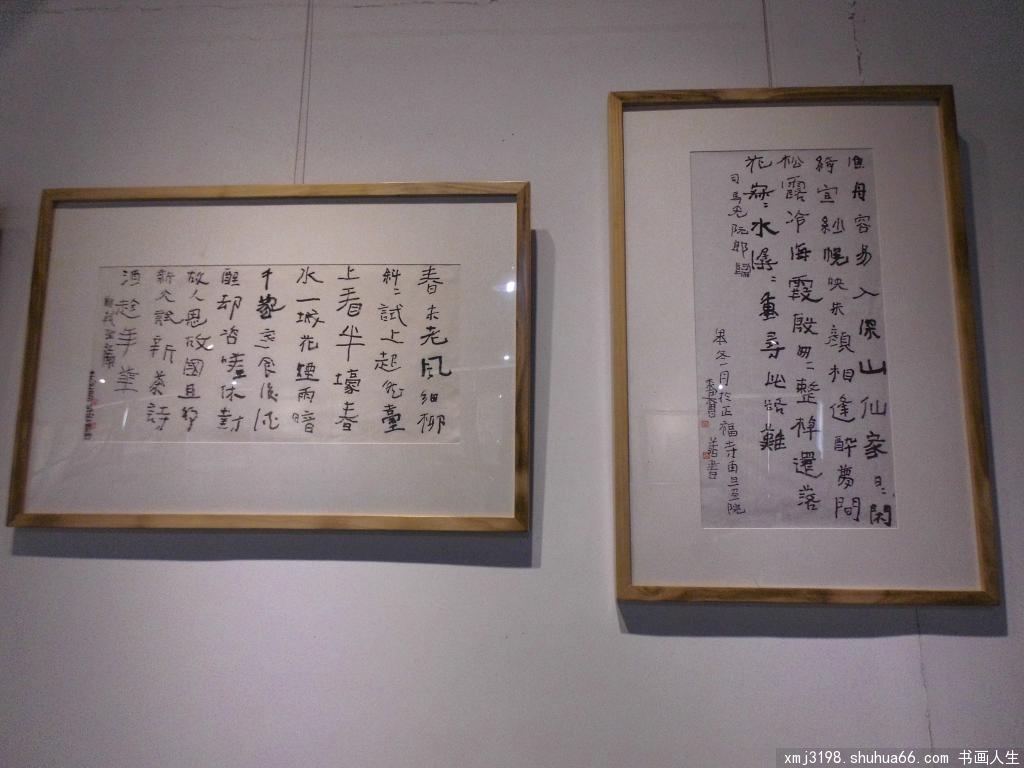 春未老風細柳
斜〻試上超然臺
上看半壕春
水一城花煙雨暗
千家寒食後酒
醒却咨嗟休對
故人思故國且將
新火試新茶詩
酒趁年華
漁舟容易入深山仙家日〻閑
綺窗紗幌映朱顏相逢醉夢間
松露冷海霞殷匆〻整棹還落
花寂〻水潺〻重尋此路難
司馬光阮郎歸
冬一月於正福寺
書
xmj3198.shuhua66.com 书画人生